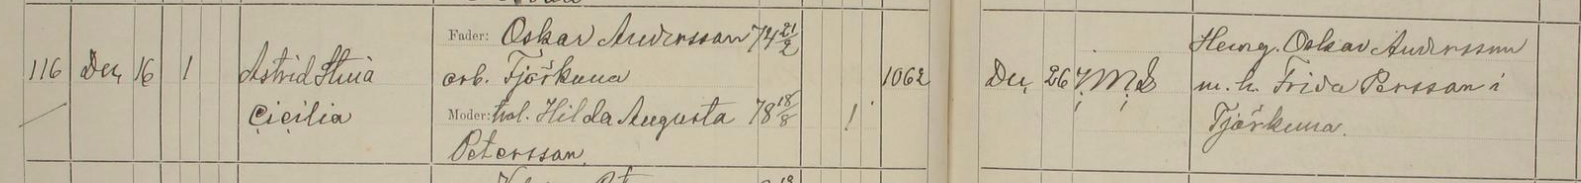 Fader: Oskar Andersson 74 21/2
116 Dec. 16 1 Astrid Stina arb. Tjärkulla 1062 Dec. 26 Hemg. Oskar Andersson
Cicilia Moder: Hilda Augusta 78 18/8 1 m. h. Frida Persson i
Petersson.